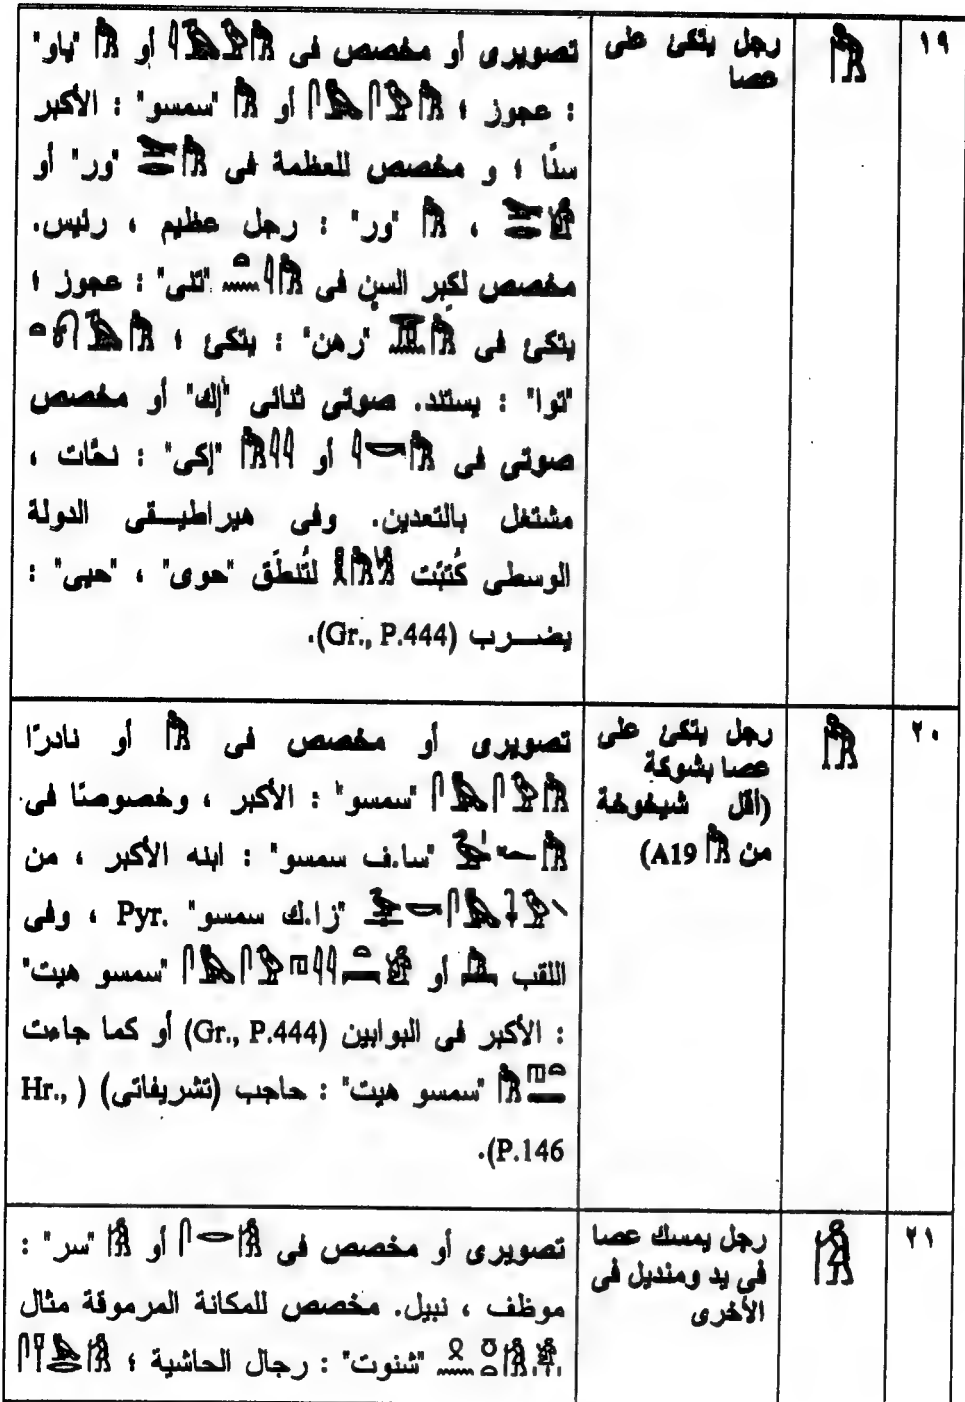 ١٩
رجل يتكئ على
عصا
تصويرى أو مخصص فى أو "ياو"
: عجوز ؛ أو "سمسو" : الأكبر
سنًا ؛ و مخصص للعظمة فى "ور" أو
، "ور" : رجل عظيم ، رئيس.
مخصص لكبر السن فى "تنى" : عجوز ؛
يتكئ فى "رهن" : يتكئ ؛
"توا" : يستند. صوتى ثنائى "إك" أو مخصص
صوتى فى أو "إكى" : نحّات ،
مشتغل بالتعدين. وفى هيراطيـقى الدولة
الوسطى كُتبت لتُنطَق "حوى" ، "حيى" :
يضـــرب (Gr., P.444).
٢٠
رجل يتكئ على
عصا بشوكة
(أقل شيخوخة
من A19)
تصويرى أو مخصص فى أو نادرًا
"سمسو" : الأكبر ، وخصوصًا فى
"سا.ف سمسو" : ابنه الأكبر ، من
"زا.ك سمسو" Pyr. ، وفى
اللقب أو "سمسو هيت"
: الأكبر فى البوابين (Gr., P.444) أو كما جاءت
"سمسو هيت" : حاجب (تشريفاتى) (Hr.,
P.146).
٢١
رجل يمسك عصا
فى يد ومنديل فى
الأخرى
تصويرى أو مخصص فى أو "سر" :
موظف ، نبيل. مخصص للمكانة المرموقة مثال
"شنوت" : رجال الحاشية ؛